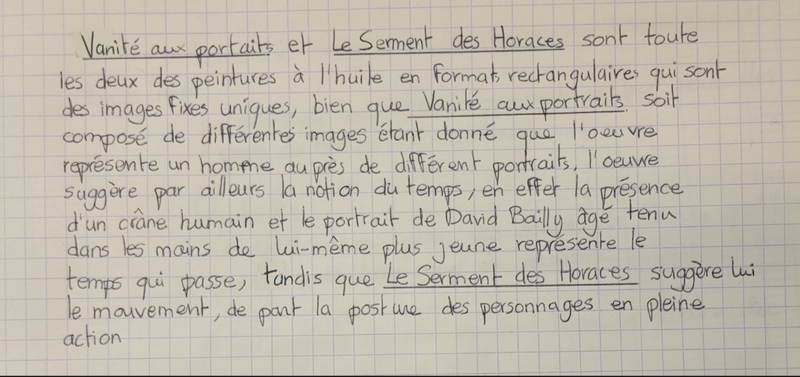 Vanité aux portaits et Le Serment des Horaces sont toute
les deux des peintures à l'huile en formats rectangulaires qui sont
des images fixes uniques, bien que Vanité aux portraits soit
composé de différentes images étant donné que l'oeuvre
représente un homme auprès de différent portraits, l'oeuvre
suggère par ailleurs la notion du temps, en effet la présence
d'un crâne humain et le portrait de David Bailly âgé tenu
dans les mains de lui-même plus jeune représente le
temps qui passe, tandis que Le Serment des Horaces suggère lui
le mouvement, de part la posture des personnages en pleine
action